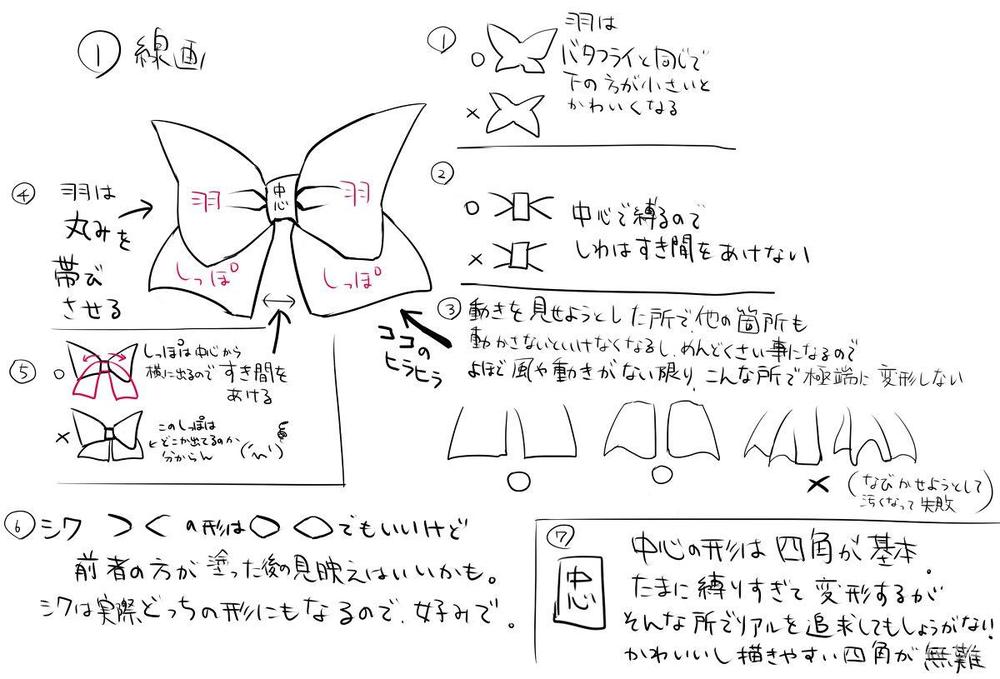 ① 線画
羽
中心
羽
しっぽ
しっぽ
ココの
ヒラヒラ
①
○
×
羽は
バタフライと同じで
下の方が小さいと
かわいくなる
②
○
×
中心で縛るので
しわはすき間をあけない
③ 動きを見せようとした所で他の箇所も
動かさないといけなくなるし、めんどくさい事になるので
よほど風や動きがない限り、こんな所で極端に変形しない
○
○
×
(なびかせようとして
汚くなって失敗)
④ 羽は
丸みを
帯び
させる
⑤
○
しっぽは中心から
横に出るのですき間を
あける
×
このしっぽは
どこから出てるのか
分からん
⑥ シワ の形は でもいいけど
前者の方が塗った後の見映えはいいかも。
シワは実際どっちの形にもなるので、好みで。
⑦
中心
中心の形は四角が基本。
たまに縛りすぎて変形するが
そんな所でリアルを追求してもしょうがない!
かわいいし描きやすい四角が無難